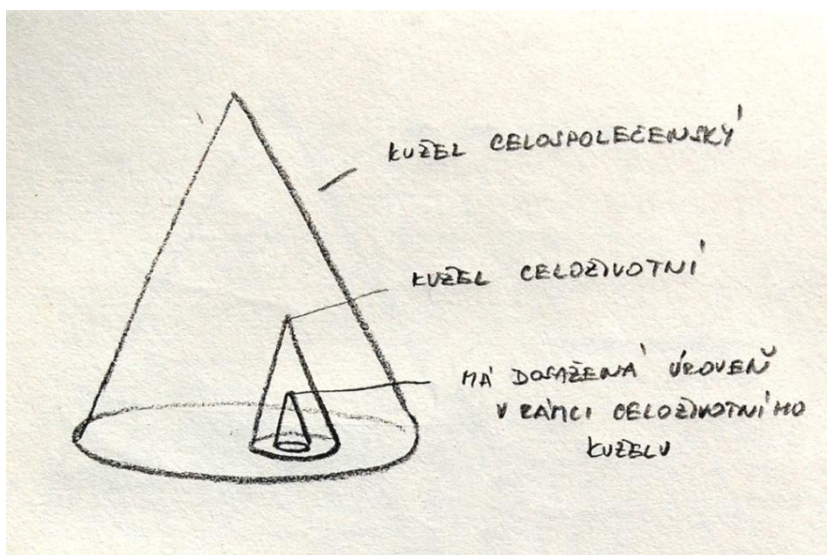 KUŽEL CELOSPOLEČENSKÝ
KUŽEL CELOŽIVOTNÍ
MÁ DOSAŽENÁ ÚROVEŇ
V RÁMCI CELOŽIVOTNÍHO
KUŽELU